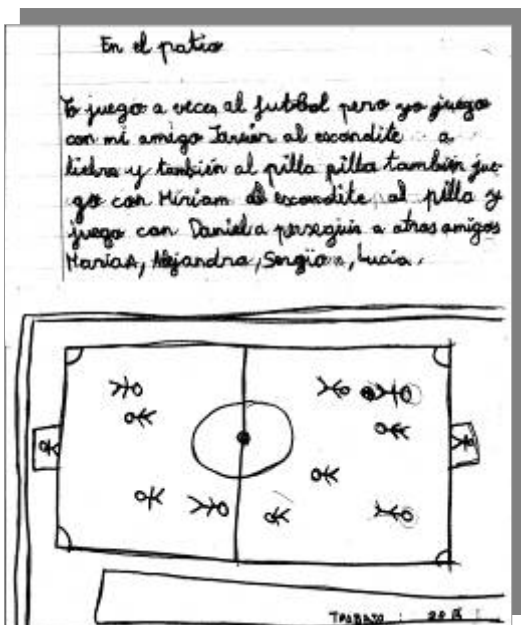 En el patio
Yo juego a veces al futbol pero yo juego
con mi amigo Javier al escondite a
liebre y tanbién al pilla pilla tambien jue-
go con Miriam al escondite al pilla y
juego con Daniel a perseguir a otros amigos
María A, Alejandra, Sergio, Lucía.
TRABAJO :